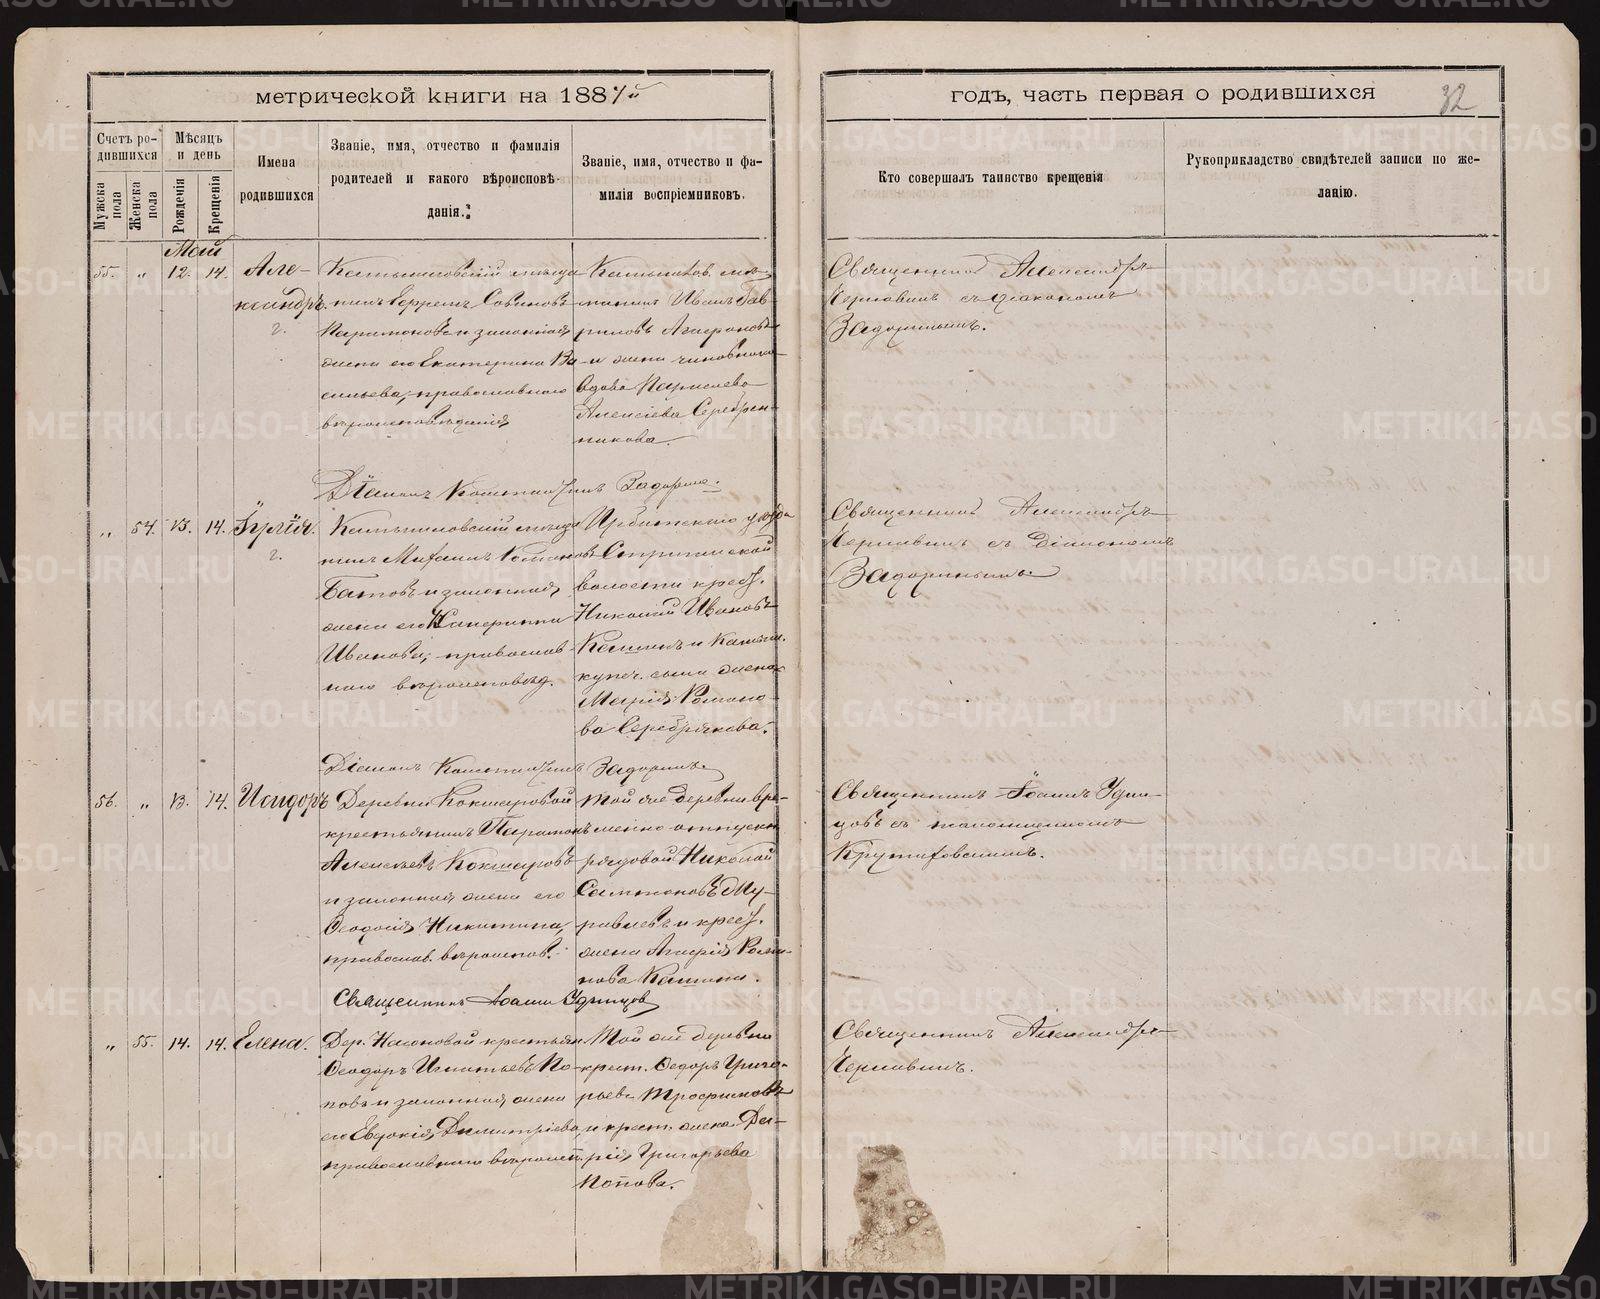 метрической книги на 1887й
годъ, часть первая о родившихся
32
Счетъ родившихся
Мужска пола
Женска пола
Мѣсяцъ и день
Рожденія
Крещенія
Имена родившихся
Званіе, имя, отчество и фамилія
родителей и какого вѣроисповѣ-
данія.
Званіе, имя, отчество и фа-
милія воспріемниковъ.
Кто совершалъ таинство крещенія
Рукоприкладство свидѣтелей записи по же-
ланію.
Май
55. " 12. 14.
Але-
ксандръ.
Камышловскій мѣща
нинъ Ефремъ Савиновъ
и законная
жена его Екатерина Ва
сильева, православнаго
вѣроисповѣданія
Камышлов. мѣ-
щанинъ Иванъ Гав-
риловъ
и жена чиновника
вдова
Алексіева Серебрен-
никова.
Священникъ Александръ
Чернавинъ съ діакономъ
Задоринымъ.
Діаконъ Константинъ Задоринъ.
" 54. 13. 14.
Юлія.
Камышловскій мѣща
нинъ Михаилъ Романовъ
Батовъ и законная
жена его
Иванова, православ
наго вѣроисповѣд.
Ирбитскаго уѣзда
волости крест.
Николай Ивановъ
Кашинъ и Камышл.
купеч. сына жена
Марія Романо-
ва Серебрякова.
Священникъ Александръ
Чернавинъ съ Діакономъ
Задоринымъ.
Діаконъ Константинъ Задоринъ.
56. " 13. 14.
Исидоръ
Деревни Кокшаровой
крестьянинъ Парамонъ
Алексѣевъ Кокшаровъ
и законная жена его
Ѳеодосія Никитина,
православ. вѣроиспов.
Той же деревни вре-
менно отпускн.
рядовой Николай
Му-
равлевъ и крест.
жена Агафія Рома-
нова Кашина.
Священникъ Іоаннъ Удин-
цовъ съ псаломщикомъ
Священникъ Іоаннъ Удинцовъ
" 55. 14. 14.
Елена.
Дер. Насоновой крестьян.
Ѳеодоръ Игнатьевъ По-
повъ и законная жена
его Евдокія Димитріева,
православнаго вѣроисп.
Той же деревни
крест. Ѳедоръ Григо-
рьевъ Трофимовъ
и крест. жена Да-
рія Григорьева
Попова.
Священникъ Александръ
Чернавинъ.
METRIKI.GASO-URAL.RU